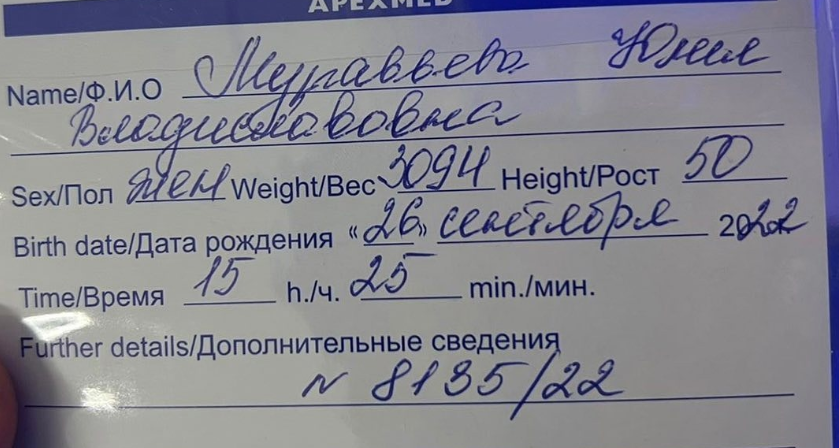 APEXMED
Name/Ф.И.О Муравьева Юлия
Владиславовна
Sex/Пол жен Weight/Вес 3094 Height/Рост 50
Birth date/Дата рождения «26» сентября 2022
Time/Время 15 h./ч. 25 min./мин.
Further details/Дополнительные сведения
N 8135/22